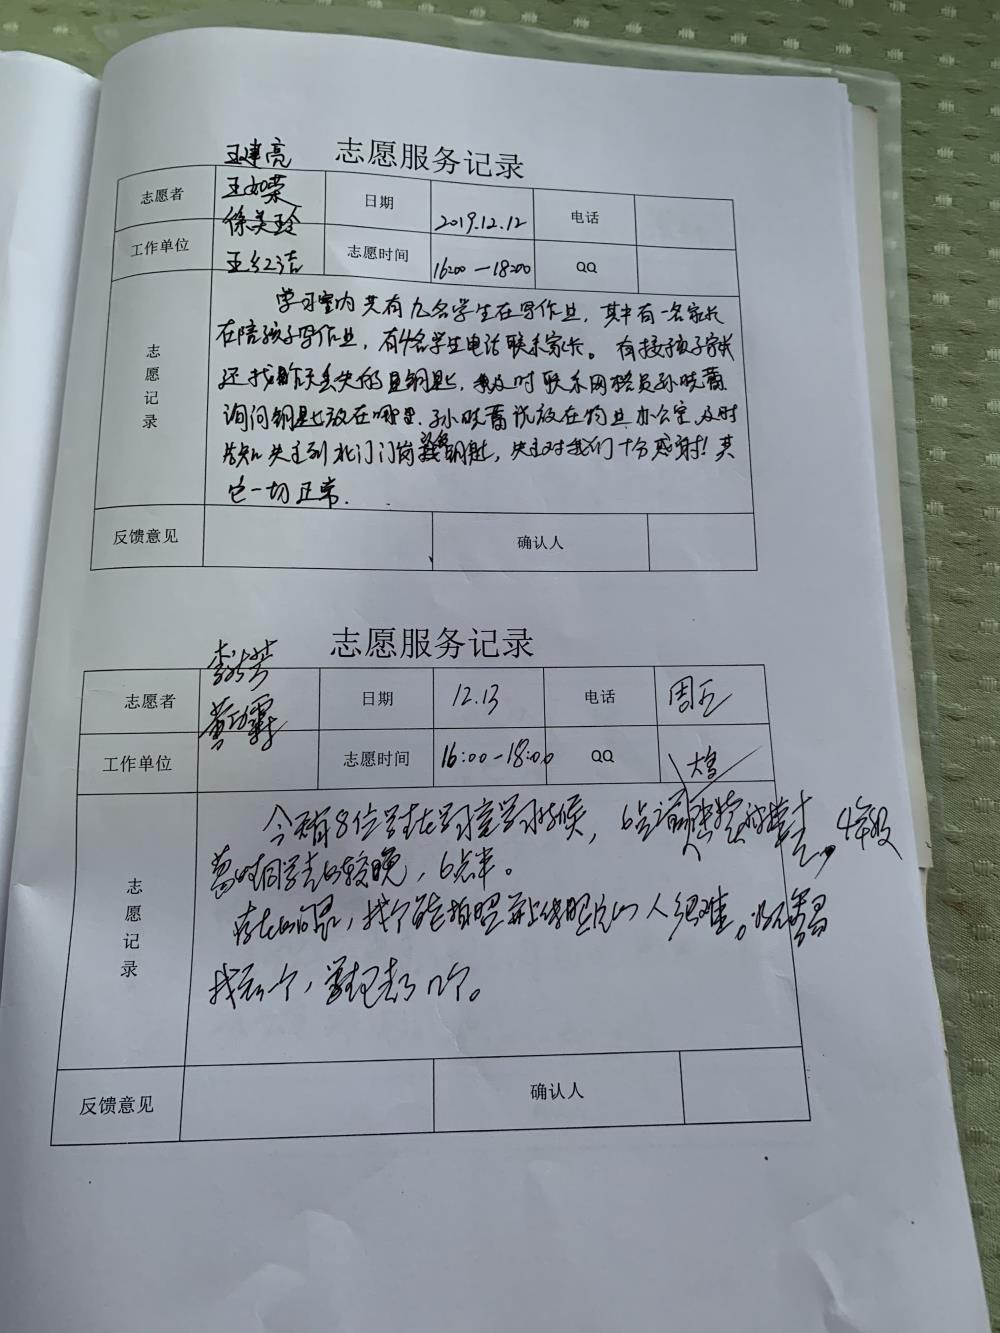 王建亮 志愿服务记录
志愿者 王如荣 日期 2019.12.12 电话
徐美玲
工作单位 王红洁 志愿时间 16:00—18:00 QQ
志愿记录
学习室内共有九名学生在写作业，其中有一名家长
在陪孩子写作业，有4名学生电话联系家长。有接孩子家长
还找昨天丢失的钥匙，及时联系网格员孙晓蕾
询问钥匙放在哪里，孙晓蕾说放在物业办公室，及时
告知失主到北门门岗钥匙，失主对我们十分感谢！其
它一切正常.
反馈意见 确认人
志愿服务记录
志愿者 日期 12.13 电话 周五
工作单位 志愿时间 16:00—18:00 QQ
志愿记录
今天有8位学生在学习室学习，6点 4年级
同学走的较晚，6点半。
存在的问题，找个能拍照并上传照片的人很难。
找到一个，
反馈意见 确认人